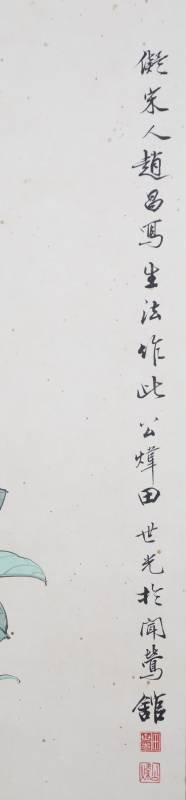 儗宋人趙昌寫生法作此公煒田世光於聞鶯舘